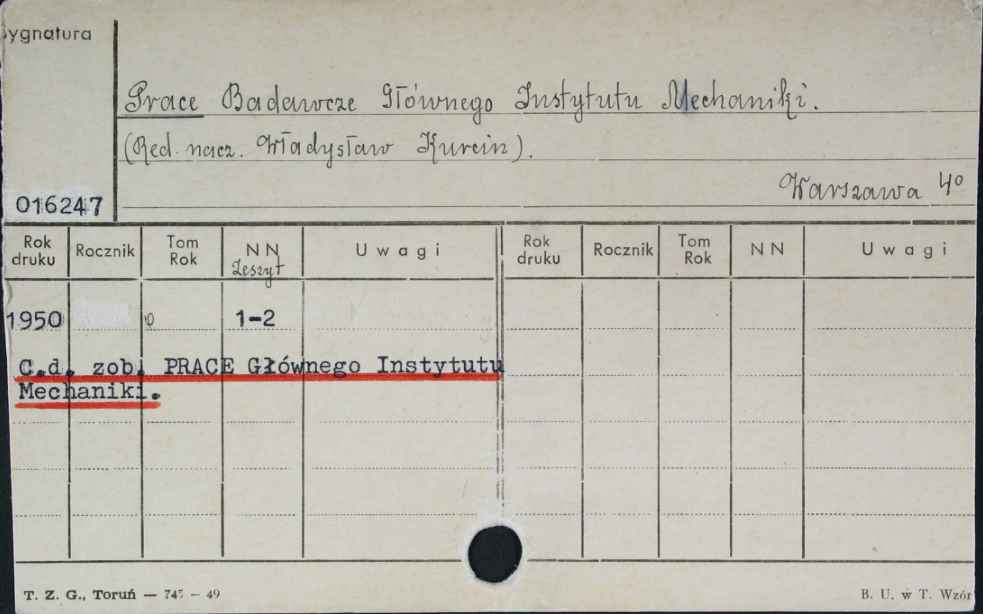 Sygnatura
Prace Badawcze Głównego Instytutu Mechaniki.
(Red. nacz. Władysław Kurcin).
Warszawa 4º
016247
Rok druku Rocznik Tom Rok NN Zeszyt Uwagi Rok druku Rocznik Tom Rok NN Uwagi
1950 1-2
C.d. zob. PRACE Głównego Instytutu
Mechaniki.
T. Z. G., Toruń — 745 - 49 B. U. w T. Wzór